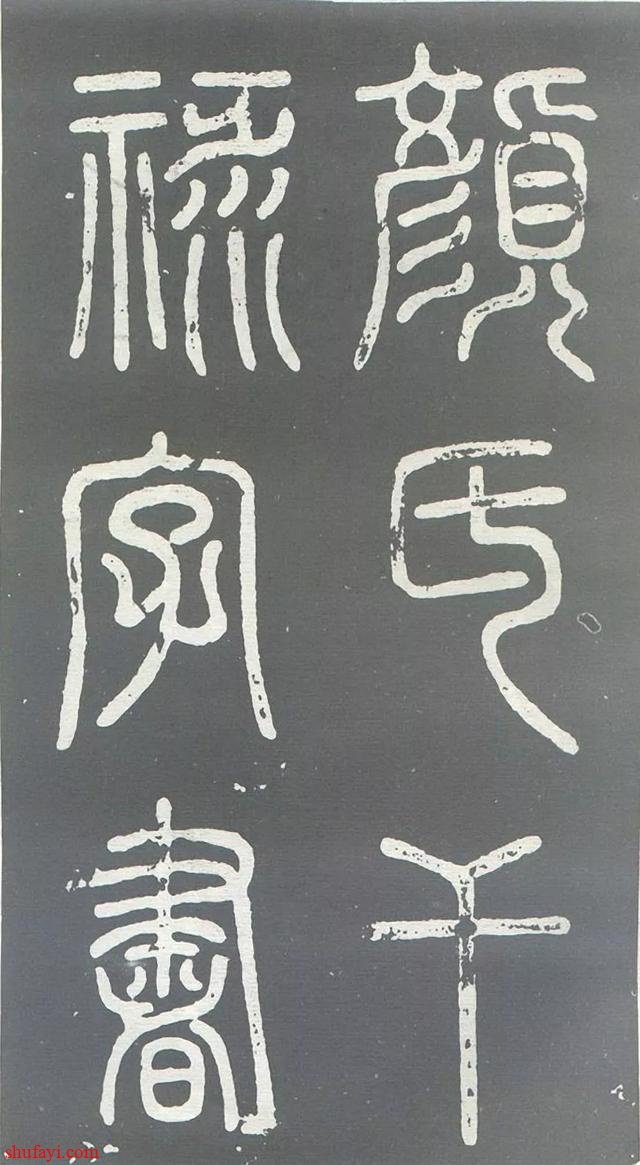 顏氏干
祿字書
shufayi.com